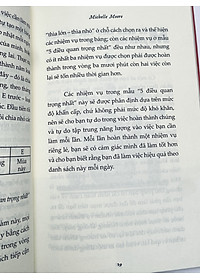 Michelle Moore
"thìa lớn – thìa nhỏ" ở chỗ cách chọn ra và thể hiện
các nhiệm vụ trong bảng; còn các nhiệm vụ ở mẫu
"5 điều quan trọng nhất" đều như nhau, nhưng
có ít nhất ba nhiệm vụ được chọn phải được hoàn
thành trong vòng ba mươi phút còn hai việc còn
lại sẽ tốn nhiều thời gian hơn.
Các nhiệm vụ trong mẫu "5 điều quan trọng
nhất" này sẽ được phân định dựa trên mức
độ khẩn cấp, chứ không phải mức độ khó khăn,
nên sẽ cho bạn tự do trong việc hoàn thành chúng
và tự do tập trung năng lượng vào việc bạn cần
làm mỗi lần. Mỗi lần hoàn thành một nhiệm vụ
riêng lẻ, bạn sẽ có cảm giác mình đã làm tốt hơn
và cho bạn biết rằng bạn đã làm việc hiệu quả theo
danh sách này mỗi ngày.
29
việc cần
E trước
E
Mùa
này
quan trọng nhất"
năm này, một
này bằng cách
trong vòng
ách tiếp cận